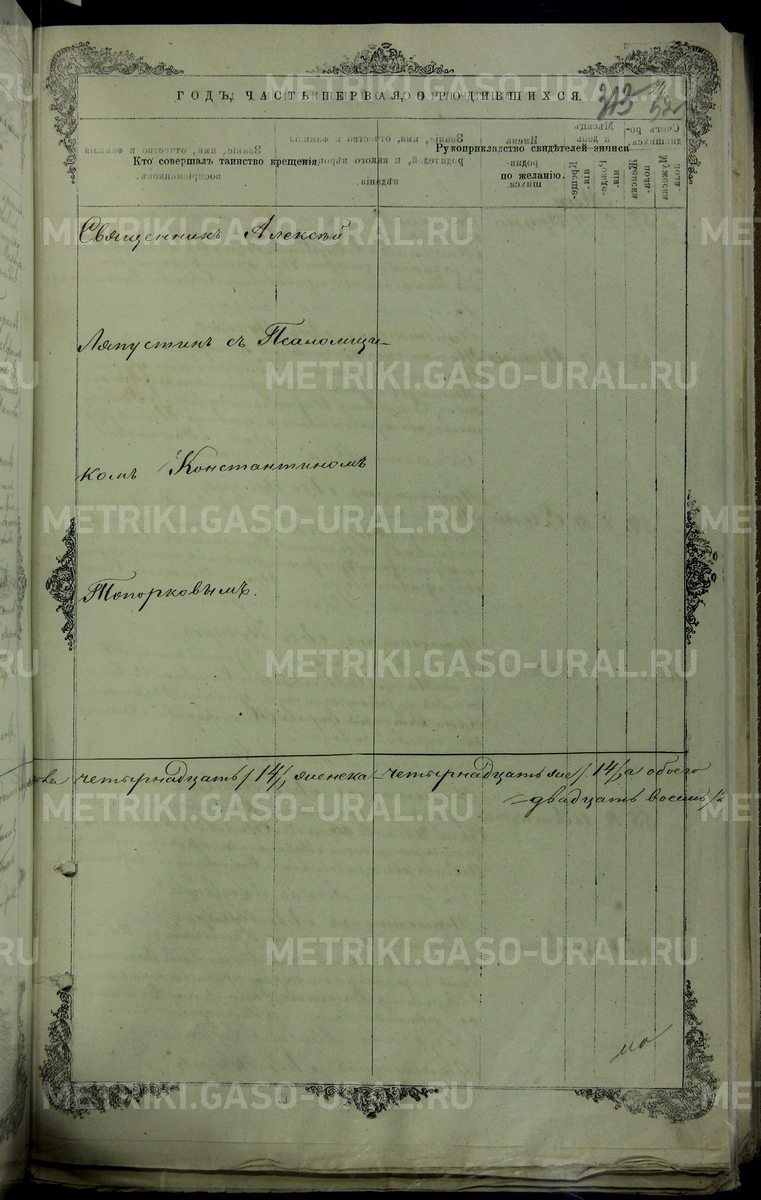 ГОДЪ, ЧАСТЬ ПЕРВАЯ, О РОДИВШИХСЯ.
Кто совершалъ таинство крещенія.
Рукоприкладство свидѣтелей записи
по желанію.
Священникъ Алексѣй
Ляпустинъ съ Псаломщи-
комъ Константиномъ
Топорковымъ.
четырнадцать /14/, женска четырнадцать же /14/, а обоего
двадцать восемь
METRIKI.GASO-URAL.RU